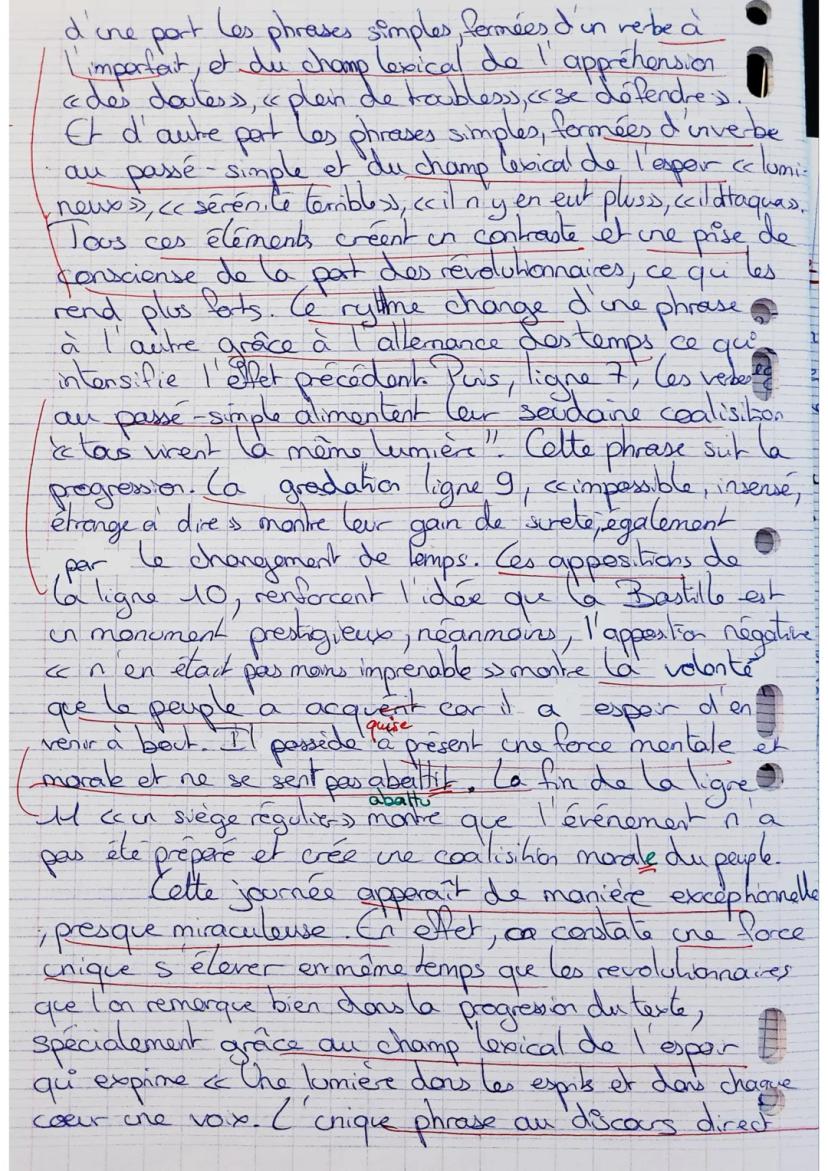 d'une part les phrases simples, formées d'un verbe à
l'imparfait, et du champ lexical de l'appréhension
« des doutes », « plein de troubles », « se défendre ».
Et d'autre part les phrases simples, formées d'un verbe
au passé-simple et du champ lexical de l'espoir « lumi-
neux », « sérénité terrible », « il n'y en eut plus », « il attaqua ».
Tous ces éléments créent un contraste et une prise de
consciense de la part des révolutionnaires, ce qui les
rend plus forts. Le rythme change d'une phrase
à l'autre grâce à l'alternance des temps ce qui
intensifie l'effet précédent. Puis, ligne 7, les verbes
au passé-simple alimentent leur soudaine coalisition
« tous virent la même lumière". Cette phrase suit la
progression. La gradation ligne 9, « impossible, insensé,
étrange à dire » montre leur gain de sureté, également
par le changement de temps. Les appositions de
la ligne 10, renforcent l'idée que la Bastille est
un monument prestigieux, néanmoins, l'apposition négative
« n'en était pas moins imprenable » montre la volonté
que le peuple a acquérit car il a espoir d'en
quise
venir à bout. Il possède à présent une force mentale et
morale et ne se sent pas abattit. La fin de la ligne
abattu
11 « un siège régulier » montre que l'événement n'a
pas été préparé et crée une coalisition morale du peuple.
Cette journée apparaît de manière exceptionnelle
, presque miraculeuse. En effet, on constate une force
unique s'élever en même temps que les revolutionnaires
que l'on remarque bien dans la progression du texte,
spécialement grâce au champ lexical de l'espoir
qui exprime « Une lumière dans les esprits et dans chaque
coeur une voix. L'unique phrase au discours direct